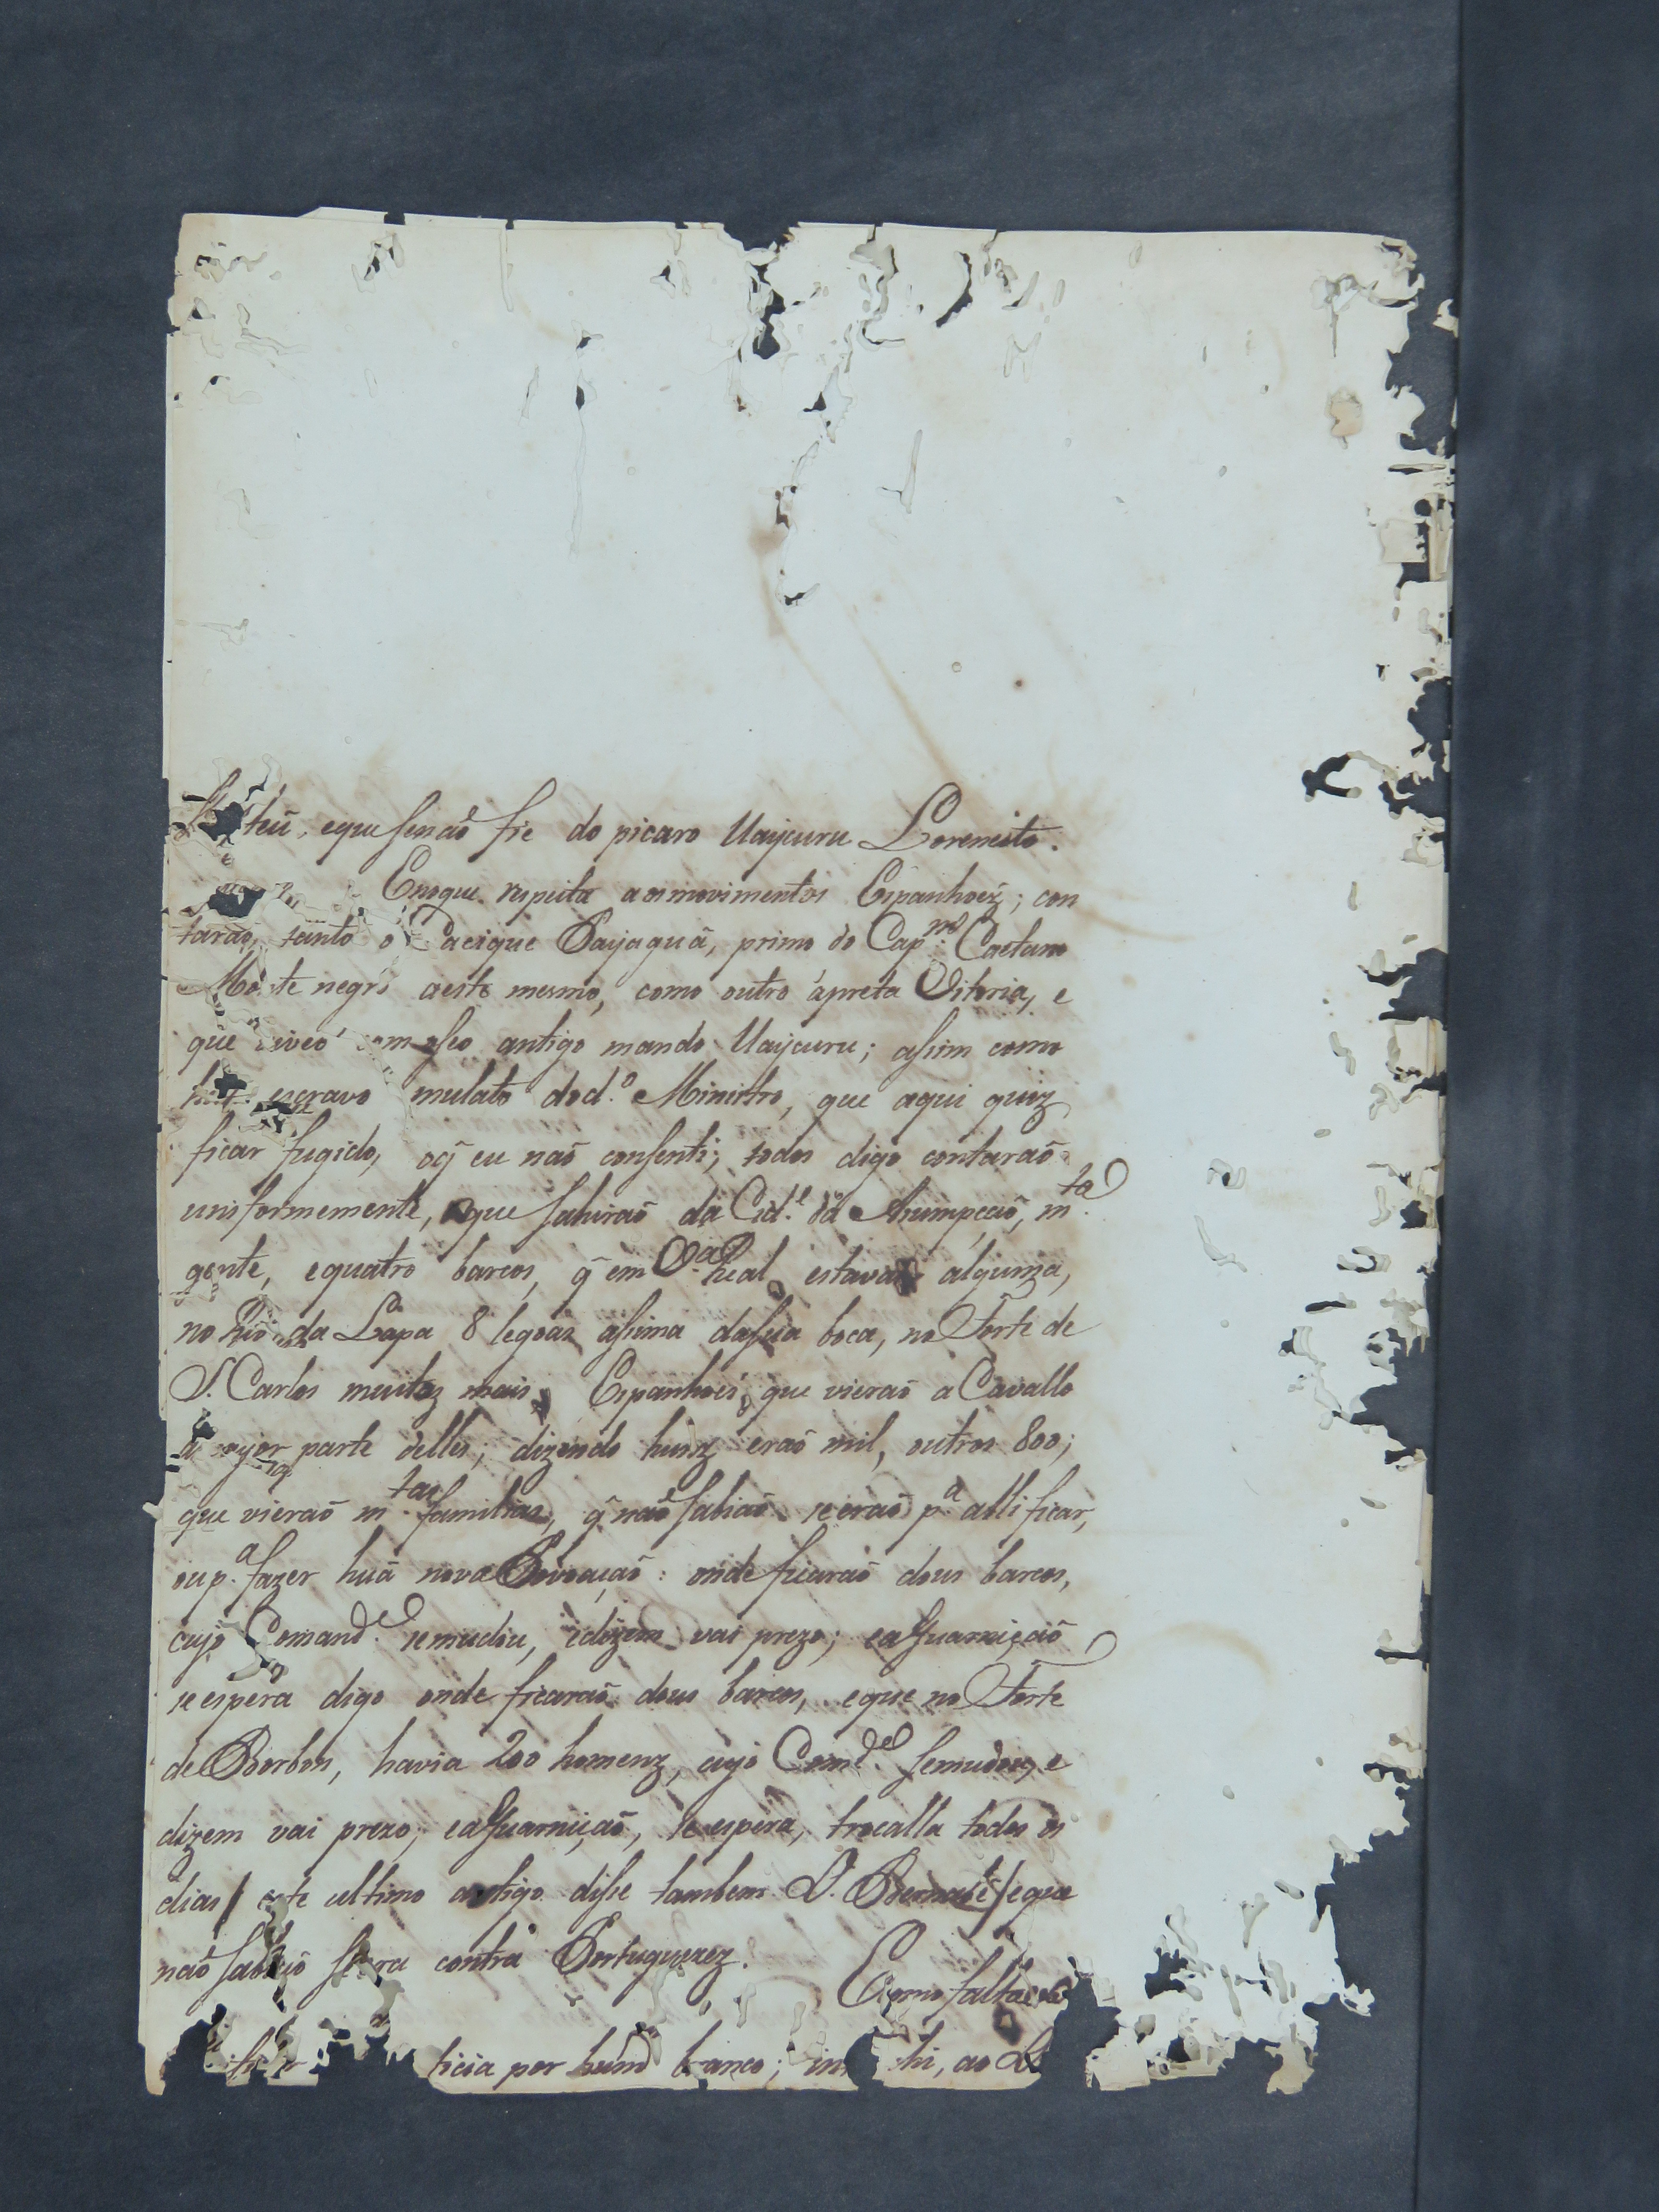 teũ, eque senaõ fie do picaro Uaycuru Lorencito.
Enoque respeita aos movimentos Espanhoez; con
taraõ, tanto o Cacique Payaguâ, primo do Cap.^m Caetano
Monte negro aeste mesmo, como outro ápreta Vitoria, e
que viveó com oseo antigo mando Uaycuru; assim como
hum escravo mulato dod.º Ministro, que aqui quiz
ficar fugido, oq̃ eu naõ consenti; todos digo contaraõ
uniformemente, que sahiraõ da Cid.e da Asumpçaõ, m.ta
gente, equatro barcos, q̃ em V.a Real estava alguma,
no Rio da Lapa 8 legoas assima dasua boca, no Forte de
S. Carlos muitoz mais Espanhoes, que vieraõ a Cavallo
a mayor parte delles; dizendo hunz eraõ mil, outros 800;
que vieraõ m.tas familias, q̃ naõ sabiaõ se eraõ p.a alli ficar,
ou p.a fazer huã nova Povoaçaõ: onde ficaraõ dous barcos,
cujo Comand.e semudou, edizem vai prezo; eaGuarniçaõ
se espera digo onde ficaraõ dous barcos, eque no Forte
de Borbon, havia 200 homenz, cujo Comd.e semudou, e
dizem vai prezo; eaGuarniçaõ, se espera, trocalla todos os
dias / este ultimo artigo disse tambem D. Bernabé / eque
naõ sabiaõ sera contra Portuguezez. Como falta
ticia por hum branco; ao